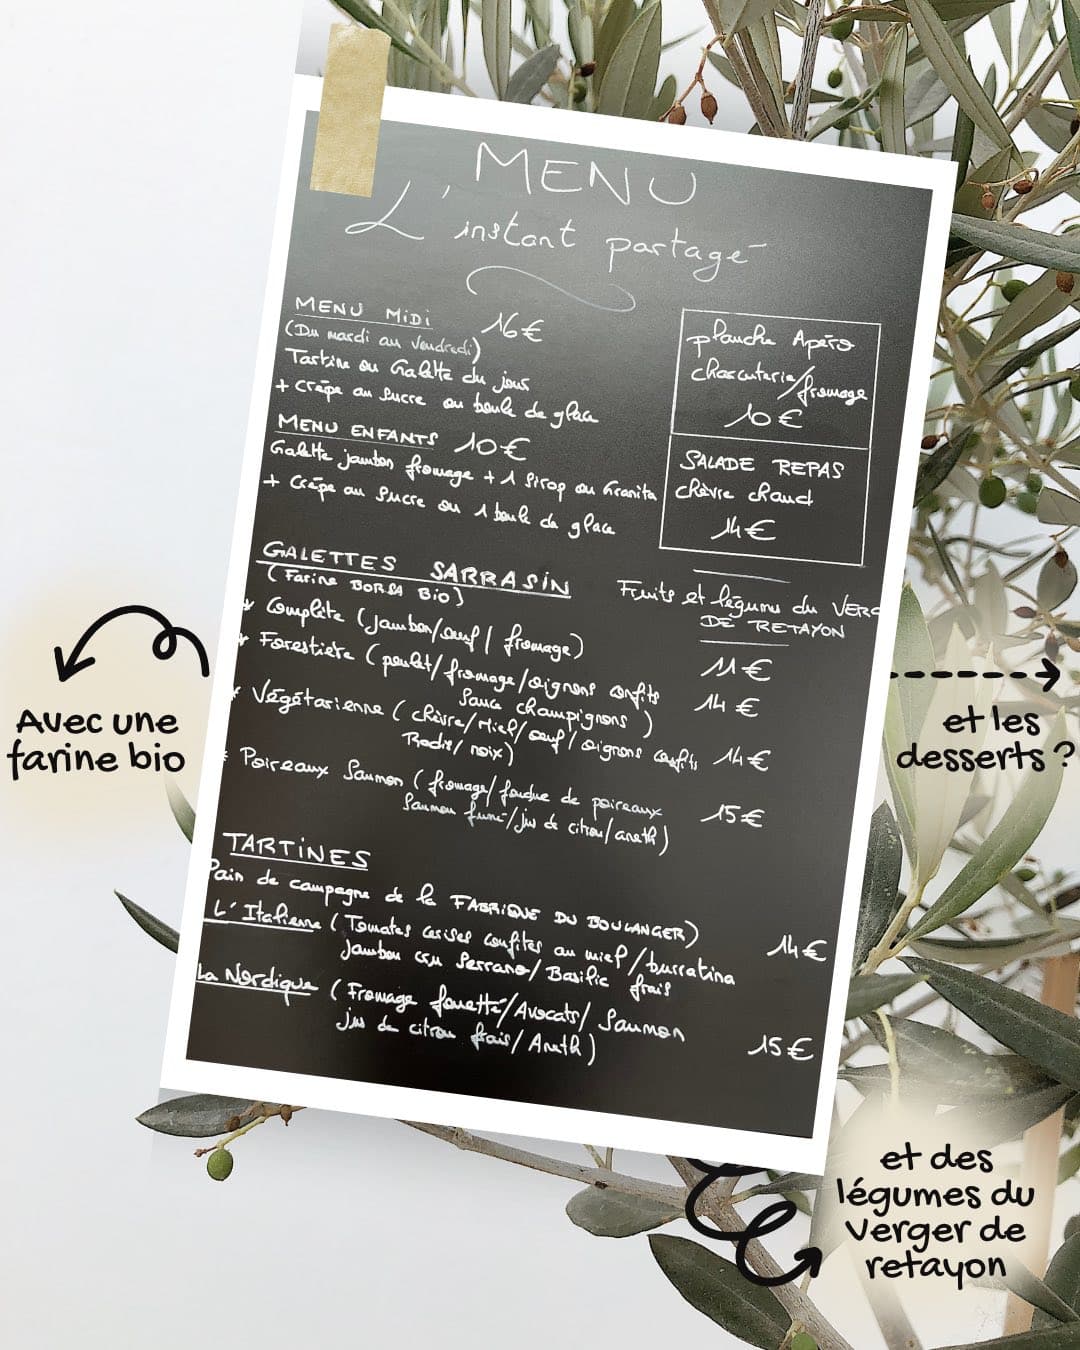 MENU
L'instant partagé
MENU MIDI 16€
(Du mardi au Vendredi)
Tartine ou Galette du jour
+ crêpe au sucre ou boule de glace
MENU ENFANTS 10€
Galette jambon fromage + 1 Sirop ou Granita
+ Crêpe au Sucre ou 1 boule de glace
planche Apéro
charcuterie/fromage
10€
SALADE REPAS
chèvre chaud
14€
GALETTES SARRASIN
(Farine BORSA Bio)
Fruits et légumes du VERG
DE RETAYON
Complète (jambon/oeuf/fromage) 11€
Forestière (poulet/fromage/oignons confits 14€
Sauce champignons)
Végétarienne (chèvre/Miel/oeuf/oignons confits 14€
Radis/noix)
Poireaux Saumon (fromage/fondue de poireaux 15€
Saumon fumé/jus de citron/aneth)
TARTINES
Pain de campagne de la FABRIQUE DU BOULANGER)
L'Italienne (Tomates cerises confites au miel/burratina 14€
Jambon cru Serrano/Basilic frais
La Nordique (Fromage fouetté/Avocats/Saumon 15€
jus de citron frais/Aneth)
Avec une
farine bio
et les
desserts ?
et des
légumes du
verger de
retayon